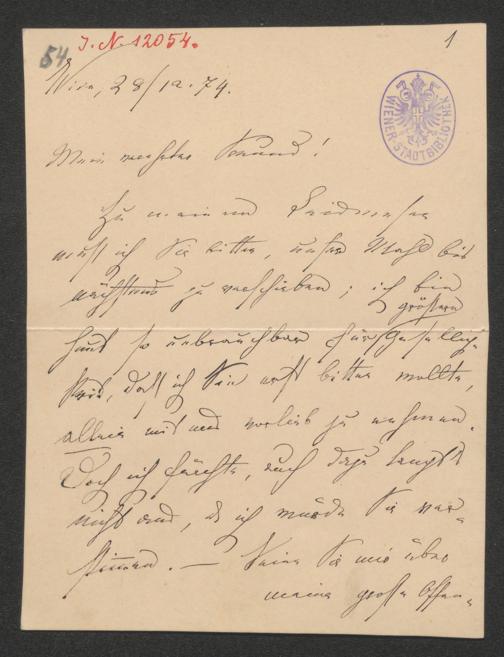 J. N. 12054.
54
1
Wien, 28/12.74.
WIENER STADTBIBLIOTHEK
Mein verehrter Freund!
Zu meinem Leidwesen
muß ich Sie bitten, unser Mahl bis
nächstens zu verschieben; ich bin
größere
heut so unbrauchbar für Gesellig-
keit, daß ich Sie erst bitten wollte,
allein mit uns vorlieb zu nehmen.
Doch ich fürchte, auch dazu langt's
nicht und, ich würde Sie ver-
stimmen. — Seien Sie mir über
meine große Offen-